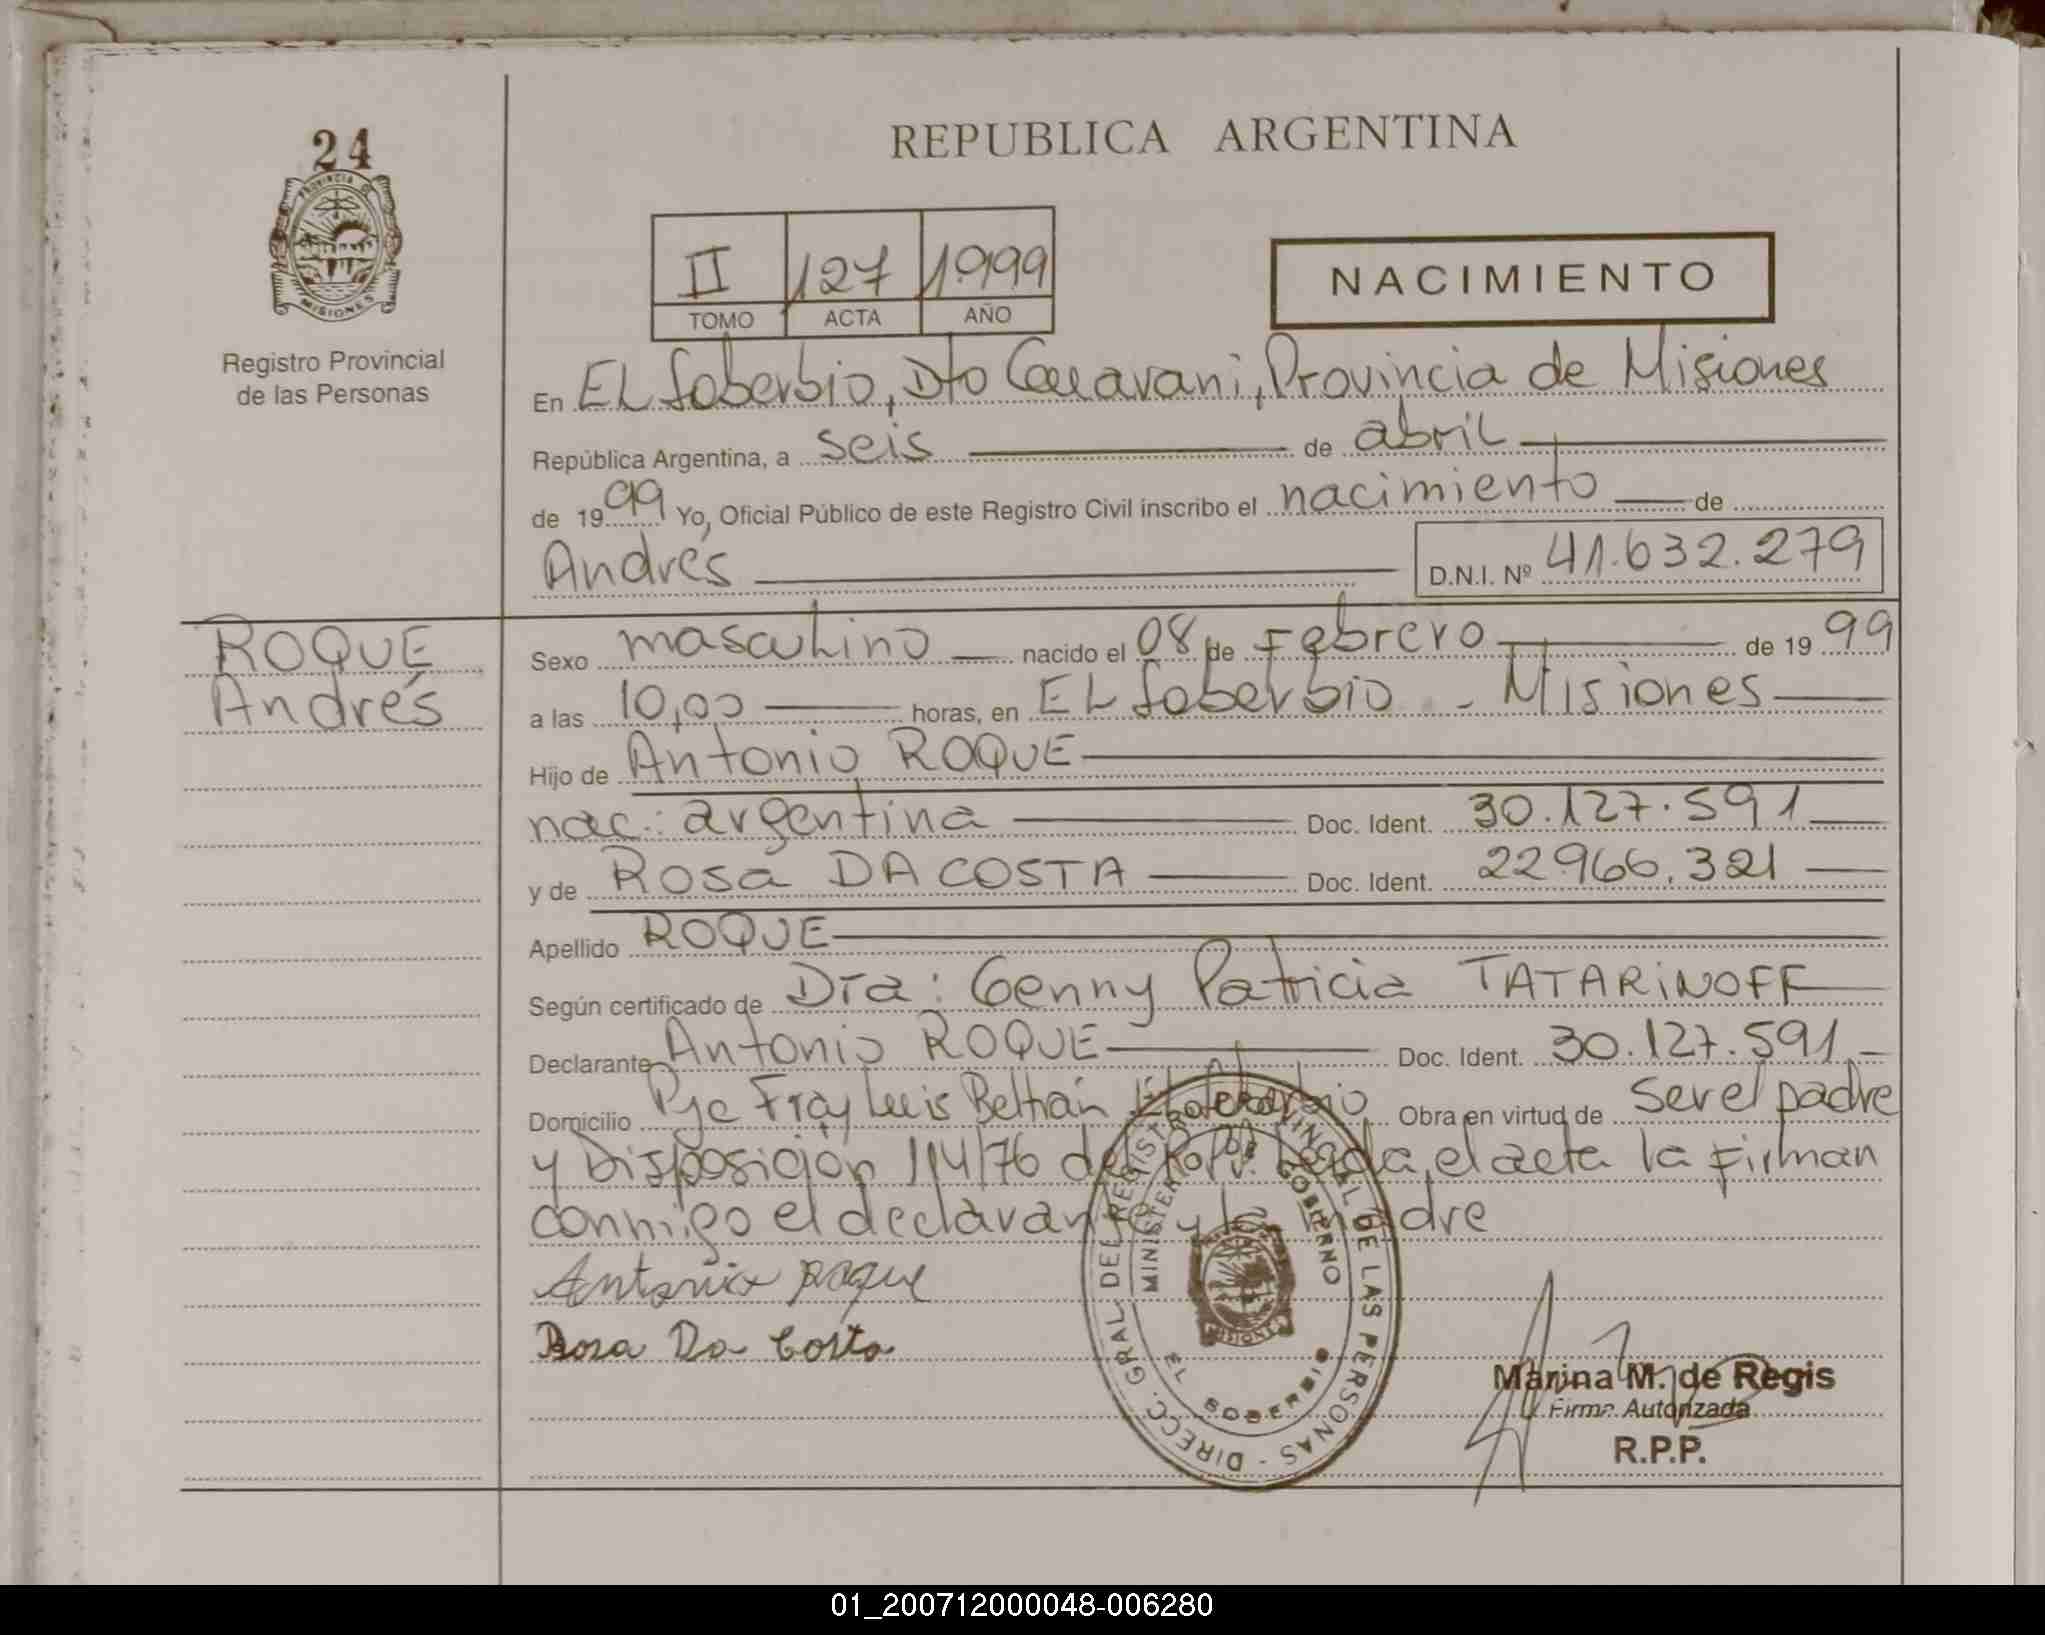 24
PROVINCIA DE
MISIONES
Registro Provincial
de las Personas
REPUBLICA ARGENTINA
II 127 1.999
TOMO ACTA AÑO
NACIMIENTO
En EL Soberbio, Dto Guaraní, Provincia de Misiones
República Argentina, a seis de abril
de 1999 Yo, Oficial Público de este Registro Civil inscribo el nacimiento de
Andrés D.N.I. Nº 41.632.279
ROQUE
Andrés
Sexo masculino nacido el 08 de Febrero de 1999
a las 10,00 horas, en EL Soberbio - Misiones
Hijo de Antonio ROQUE
nac.: argentina Doc. Ident. 30.127.591
y de Rosa DA COSTA Doc. Ident. 22.966.321
Apellido ROQUE
Según certificado de Dra: Genny Patricia TATARINOFF
Declarante Antonio ROQUE Doc. Ident. 30.127.591
Domicilio Pje Fray Luis Beltrán El Soberbio Obra en virtud de ser el padre
y Disposición 114/76 del R.P.P. Leída el acta la firman
conmigo el declarante y la madre
Antonio Roque
Rosa Da Costa
DIRECC. GRAL DEL REGISTRO PROVINCIAL DE LAS PERSONAS -
MINISTERIO DE GOBIERNO
MISIONES
EL SOBERBIO
Marina M. de Regis
Firma Autorizada
R.P.P.
01_200712000048-006280